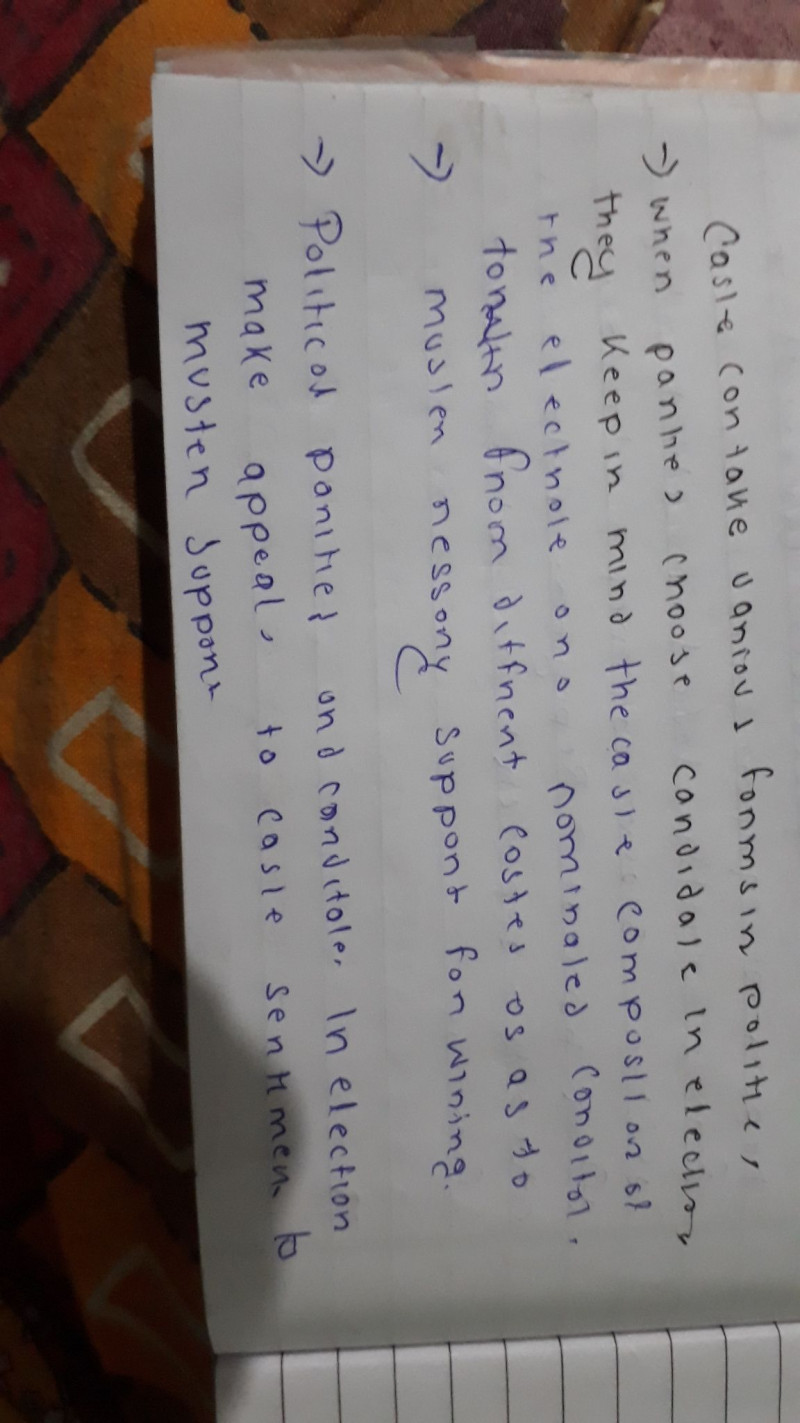 Casle can take vanious fonms in politic,
→ when panhes choose candidate in election
they keep in mind the casle composlion of
the electnole ano nominaled
fnom diffnent costes os as to
→ muslen nessony suppont fon wining.
→ Political panities and canditole, In election
make appeal, to casle sentimen to
musten suppont